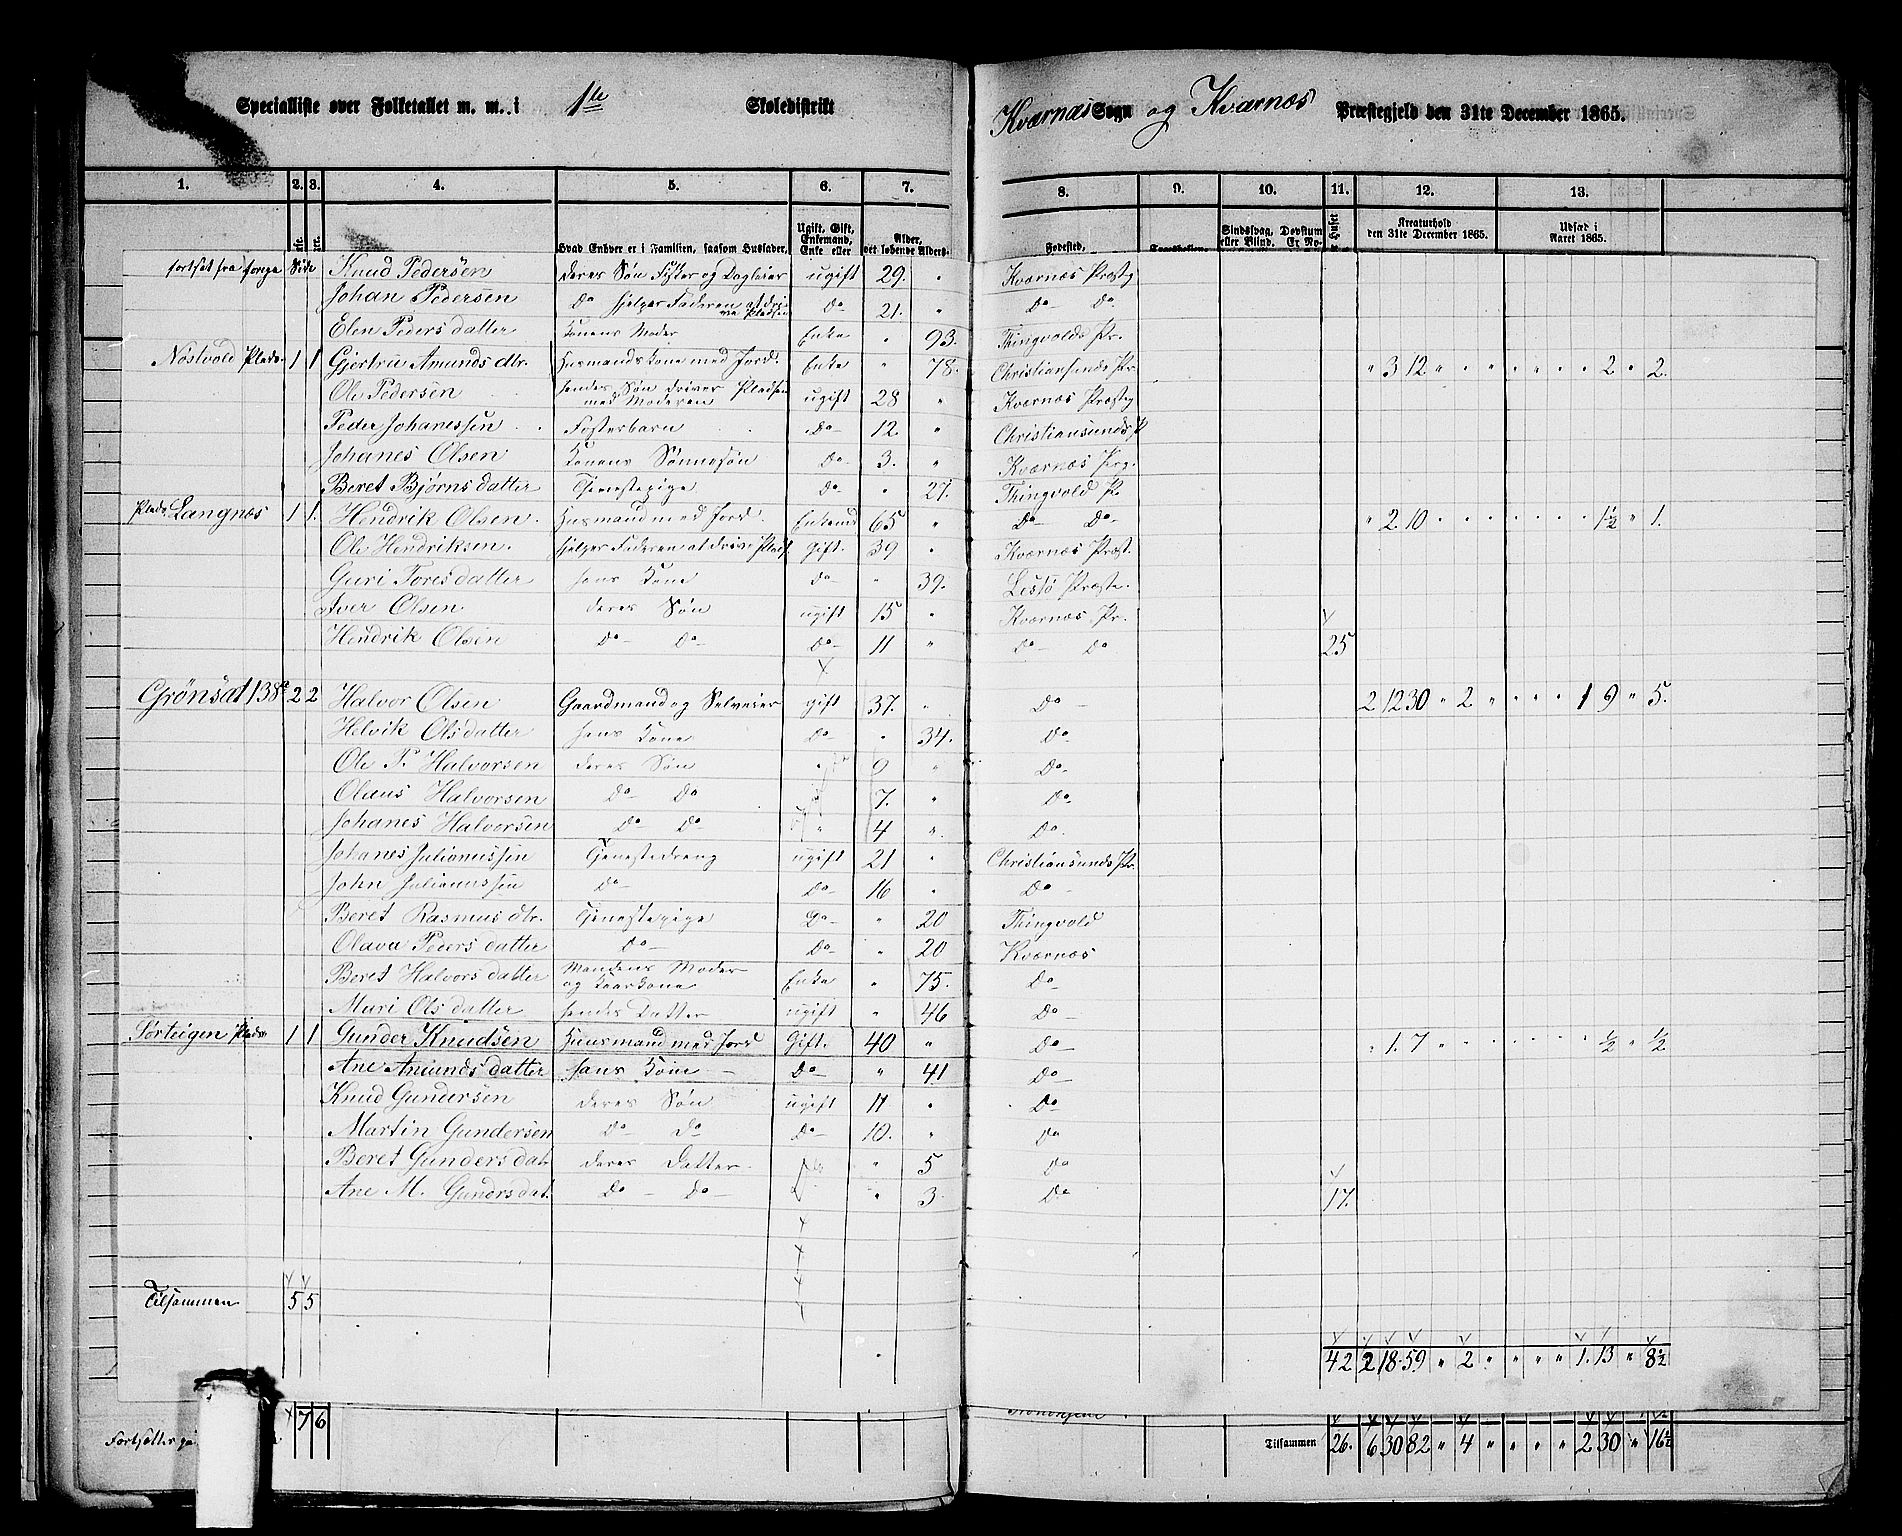 Specialliste over Folketallet m. m. i 1te Skoledistrikt Kværnæs Sogn og Kværnæs Præstegjeld den 31te December 1865.
1. 2. 3. 4. 5. 6. 7. 8. 9. 10. 11. 12. 13.
Hvad Enhver er i Familien, saasom Husfader, Ugift, Gift, Enkemand, Enke eller Alder, det løbende Alders- Fødested. Sindssvag, eller Blind. Døvstum Er No- Kreaturhold den 31te December 1865. Udsæd i Aaret 1865.
fortsat fra forrige Side Knud Pedersen deres Søn Fisker og Dagleier ugift 29. " Kværnæs Præstg
Johan Pedersen Do hjelper Faderen at drive Pladsen Do 21. " Do Do
Elen Peders datter Konens Moder Enke " 93. Thingvolds Pr.
Nøstvold Plads 1 1 Gjertru Amunds dtr. Husmandskone med Jord. Enke " 78. Christiansunds Pr. " 3 12 " " " " " " 2 " 2.
Ole Pedersen hendes Søn driver Pladsen med Moderen ugift 28 " Kværnæs Præstg
Peder Johanessen Fosterbarn Do 12 " Christiansunds P
Johanes Olsen Konens Sønnesøn Do 3. " Kværnæs Prg.
Beret Bjørns datter Tjenestepige Do " 27. Thingvold Pr
Plads Langnæs 1 1. Hendrik Olsen. Husmand med Jord. Enkemd 65 " Do Do " 2 10 " " " " " " 1½ " 1.
Ole Hendriksen. hjelper Faderen at drive Plads gift. 39 " Kværnæs Præst.
Guri Tores datter hans Kone Do " 39. Lesjø Præste.
Iver Olsen deres Søn ugift 15 " Kværnæs Pr.
Hendrik Olsen Do Do Do 11 " Do Do 25
Grønsæt 138a 2 2 Halvor Olsen Gaardmand og Selveier gift 37. " Do 2 12 30 " 2 " " " " 1 9 " 5.
Helvik Olsdatter hans Kone Do " 34. Do
Ole P. Halvorsen deres Søn " 9 " Do
Olaus Halvorsen Do Do 7. " Do
Johanes Halvorsen Do Do " 4 " Do.
Johanes Julianussen Tjenestedreng ugift 21 " Christiansunds Pr.
John Julianussen Do Do 16 " Do
Beret Rasmus dtr. Tjenestepige Do " 20 Thingvold
Olava Peders datter Do Do " 20 Kværnæs
Beret Halvors datter Mandens Moder og Kaarkone Enke " 75. Do
Mari Ols datter hendes Datter ugift " 46 Do
Sørteigen Plads 1 1 Gunder Knudsen Huusmand med Jord Gift. 40 " Do " 1. 7 " " " " " " ½ " ½
Ane Amunds datter hans Kone Do " 41 Do
Knud Gundersen deres Søn ugift 11 " Do
Martin Gundersen Do Do Do 10. " Do
Beret Gunders dat deres Datter " 5 Do
Ane M. Gundrs dat. Do Do " 3. Do 17.
Tilsammen 5 5
42 2 18 59 " 2 " " " " 1. 13 " 8½
7 6
Fortsættes paa Tilsammen 26. 6 30 82 " 4 " " " " 2 30 " 16½